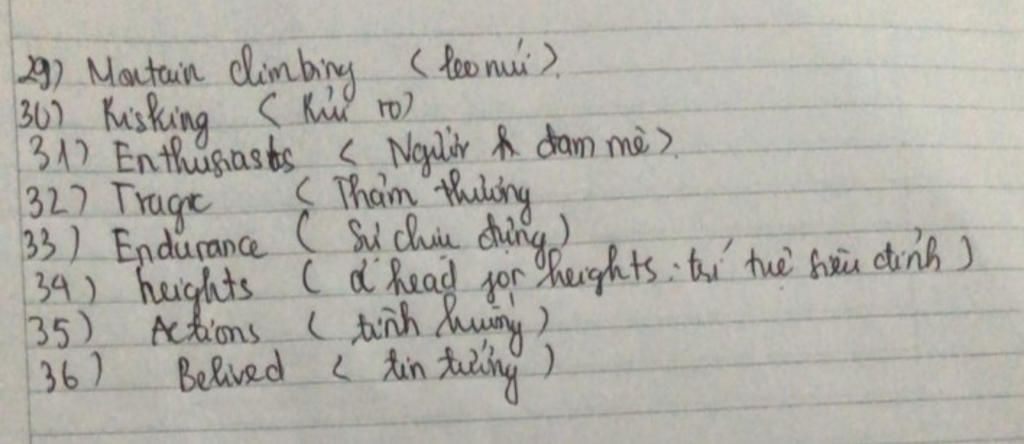 29) Montain climbing ( leo núi ).
30) Risking ( Rủi ro)
31) Enthusiasts ( Người đam mê ).
32) Tragic ( Thảm thương
33) Endurance ( Sự chịu đựng )
34) heights ( a head for heights : trí tuệ siêu đỉnh )
35) Actions ( tình huống )
36) Belived ( tin tưởng )